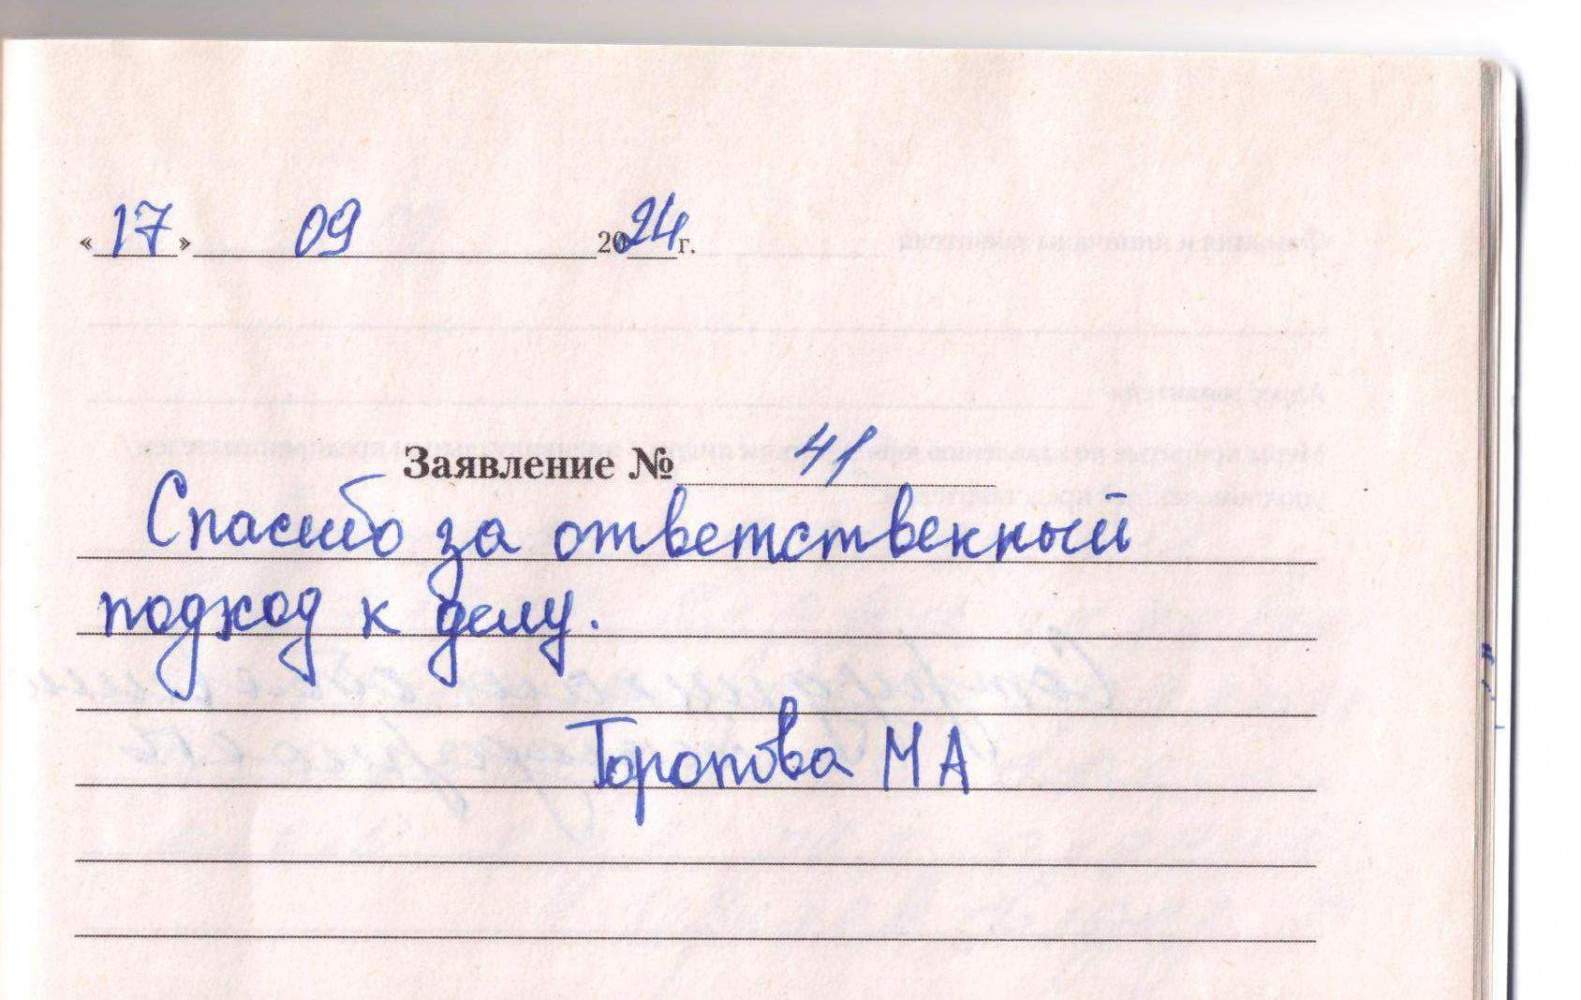 «17» 09 2024 г.
Заявление № 41
Спасибо за ответственный
подход к делу.
Торопова М А